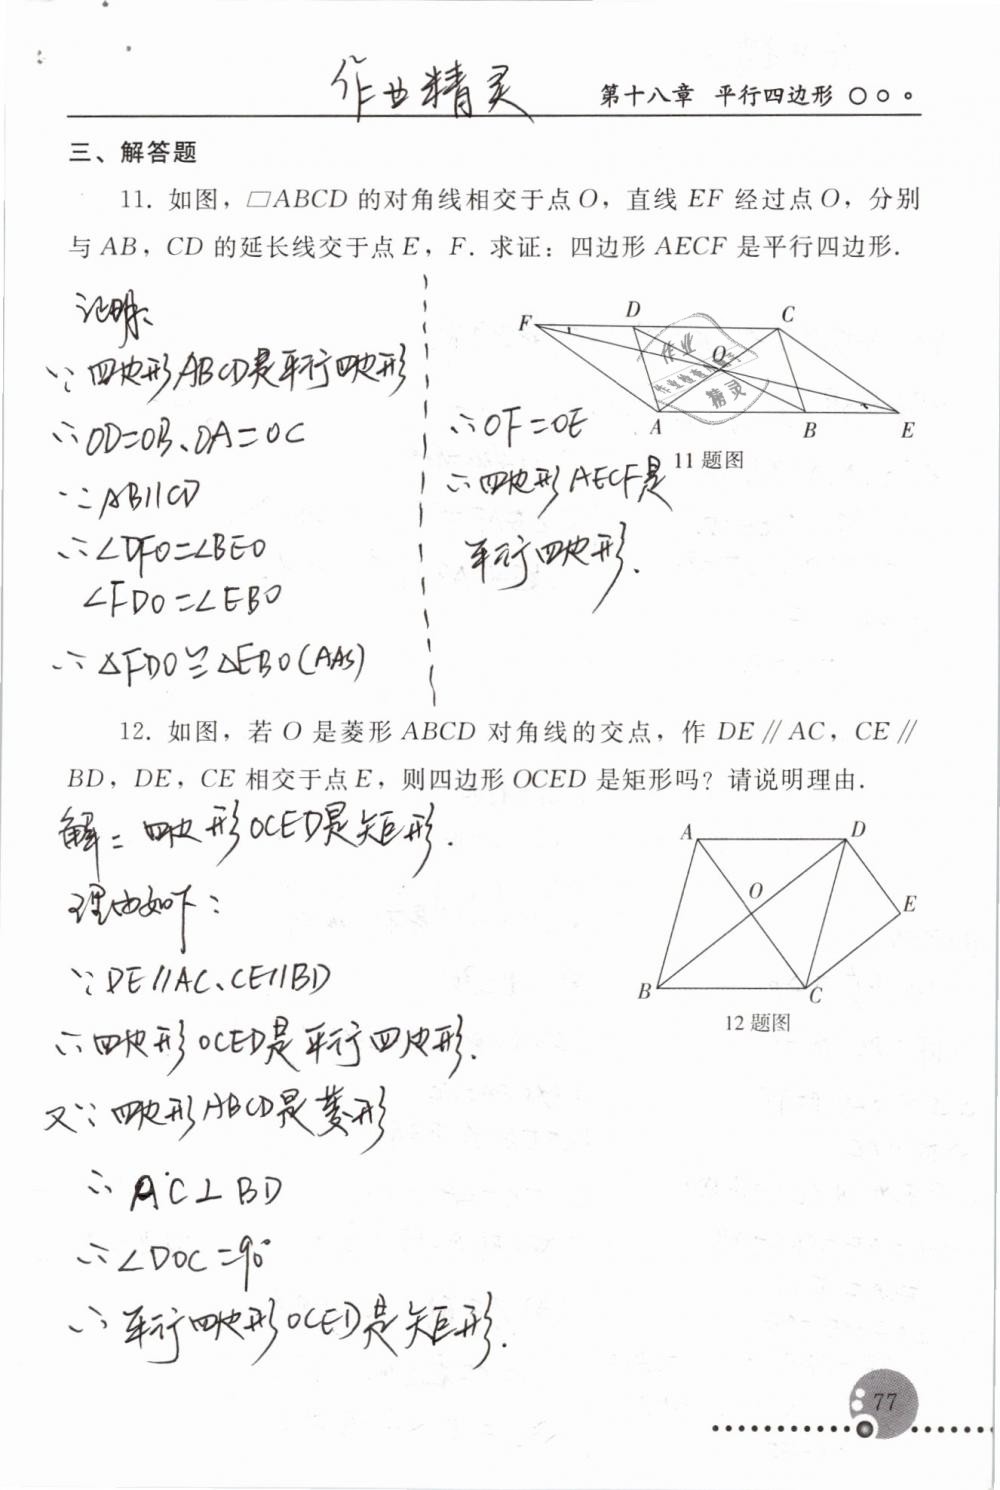 作业精灵
第十八章 平行四边形
三、解答题
11. 如图，▱ABCD 的对角线相交于点O，直线 EF 经过点O，分别
与 AB，CD 的延长线交于点E，F. 求证：四边形 AECF 是平行四边形.
证明：
∵ 四边形ABCD是平行四边形
∴ OD=OB、OA=OC
∵ AB∥CD
∴ ∠DFO=∠BEO
∠FDO=∠EBO
∴ △FDO≌△EBO(AAS)
F D C
O
作业
精灵
A B E
11题图
∴ OF=OE
∴ 四边形AECF是
平行四边形.
12. 如图，若 O 是菱形 ABCD 对角线的交点，作 DE∥AC，CE∥
BD，DE，CE 相交于点E，则四边形 OCED 是矩形吗？请说明理由.
解：四边形OCED是矩形.
理由如下：
∵ DE∥AC、CE∥BD
∴ 四边形OCED是平行四边形.
又∵ 四边形ABCD是菱形
∴ AC⊥BD
∴ ∠DOC=90°
∴ 平行四边形OCED是矩形.
A D
O E
B C
12题图
77